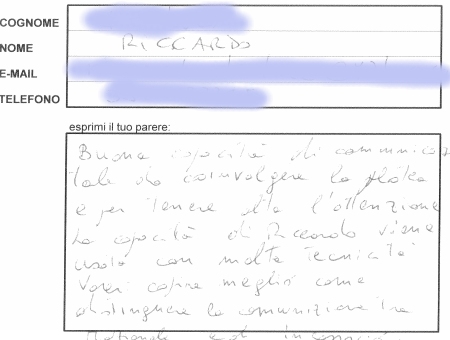 COGNOME
NOME RICCARDO
E-MAIL
TELEFONO
esprimi il tuo parere:
Buona capacità di communicaz
tale da coinvolgere la platea
e per tenere alta l'attenzione
La capacità di Riccardo viene
usata con molta tecnicità
Vorrei capire meglio come
distinguere la comunizione tra
razionale ed inconscia.